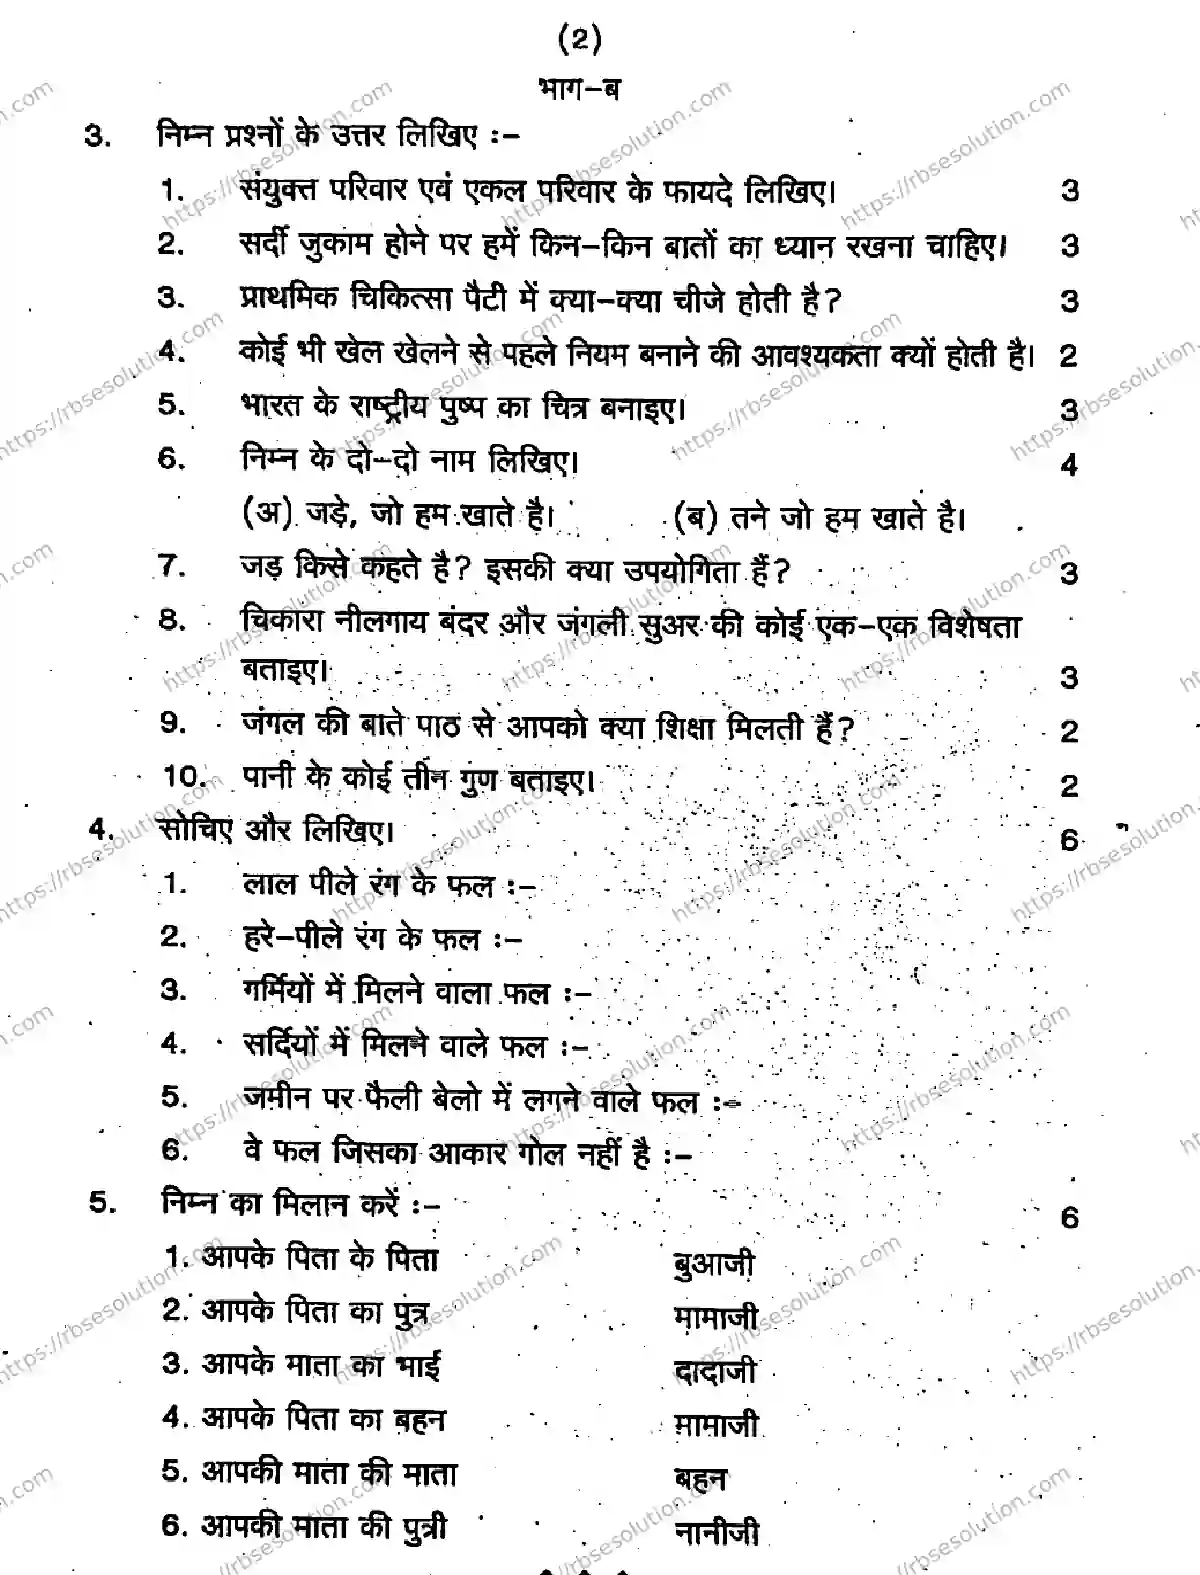 (2)
भाग-ब
3. निम्न प्रश्नों के उत्तर लिखिए :-
1. संयुक्त परिवार एवं एकल परिवार के फायदे लिखिए। 3
2. सर्दी जुकाम होने पर हमें किन-किन बातों का ध्यान रखना चाहिए। 3
3. प्राथमिक चिकित्सा पैटी में क्या-क्या चीजे होती है? 3
4. कोई भी खेल खेलने से पहले नियम बनाने की आवश्यकता क्यों होती है। 2
5. भारत के राष्ट्रीय पुष्प का चित्र बनाइए। 3
6. निम्न के दो-दो नाम लिखिए। 4
(अ) जड़े, जो हम खाते है। (ब) तने जो हम खाते है।
7. जड़ किसे कहते है? इसकी क्या उपयोगिता हैं? 3
8. चिकारा नीलगाय बंदर और जंगली सुअर की कोई एक-एक विशेषता
बताइए। 3
9. जंगल की बाते पाठ से आपको क्या शिक्षा मिलती हैं? 2
10. पानी के कोई तीन गुण बताइए। 2
4. सोचिए और लिखिए। 6
1. लाल पीले रंग के फल :-
2. हरे-पीले रंग के फल :-
3. गर्मियों में मिलने वाला फल :-
4. सर्दियों में मिलने वाले फल :-
5. जमीन पर फैली बेलो में लगने वाले फल :-
6. वे फल जिसका आकार गोल नहीं है :-
5. निम्न का मिलान करें :- 6
1. आपके पिता के पिता बुआजी
2. आपके पिता का पुत्र मामाजी
3. आपके माता का भाई दादाजी
4. आपके पिता का बहन मामाजी
5. आपकी माता की माता बहन
6. आपकी माता की पुत्री नानीजी
https://rbsesolution.com